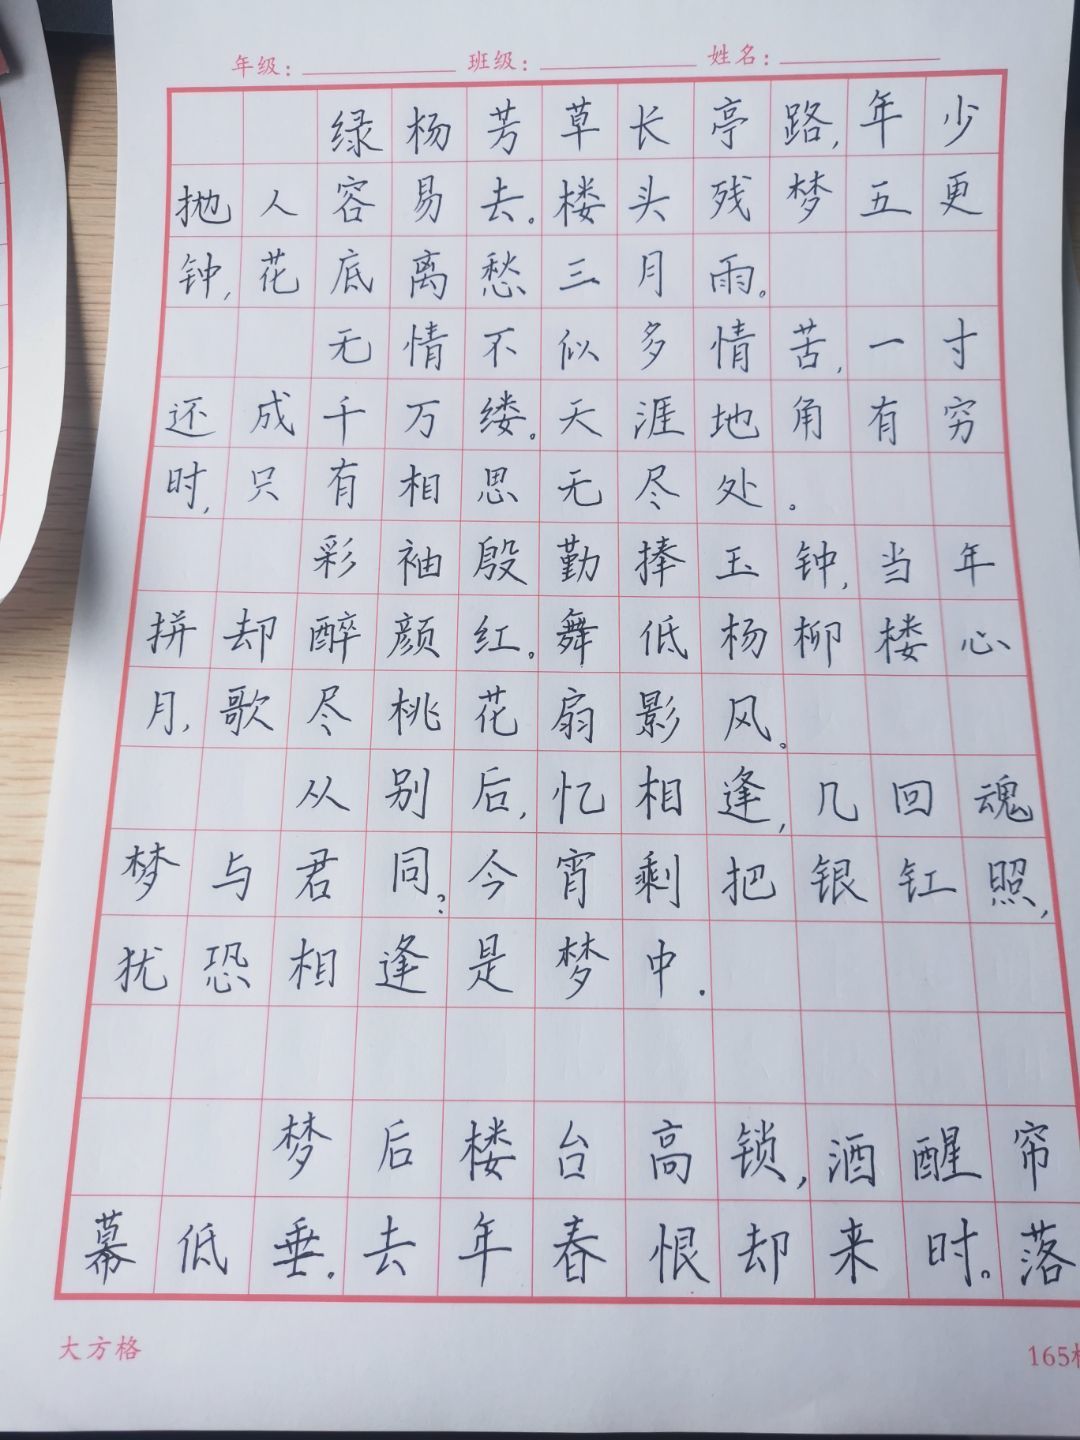 年级： 班级： 姓名：
绿杨芳草长亭路,年少
抛人容易去。楼头残梦五更
钟,花底离愁三月雨。
无情不似多情苦,一寸
还成千万缕。天涯地角有穷
时,只有相思无尽处。
彩袖殷勤捧玉钟,当年
拼却醉颜红。舞低杨柳楼心
月,歌尽桃花扇影风。
从别后,忆相逢,几回魂
梦与君同?今宵剩把银缸照,
犹恐相逢是梦中.
梦后楼台高锁,酒醒帘
幕低垂。去年春恨却来时。落
大方格 165